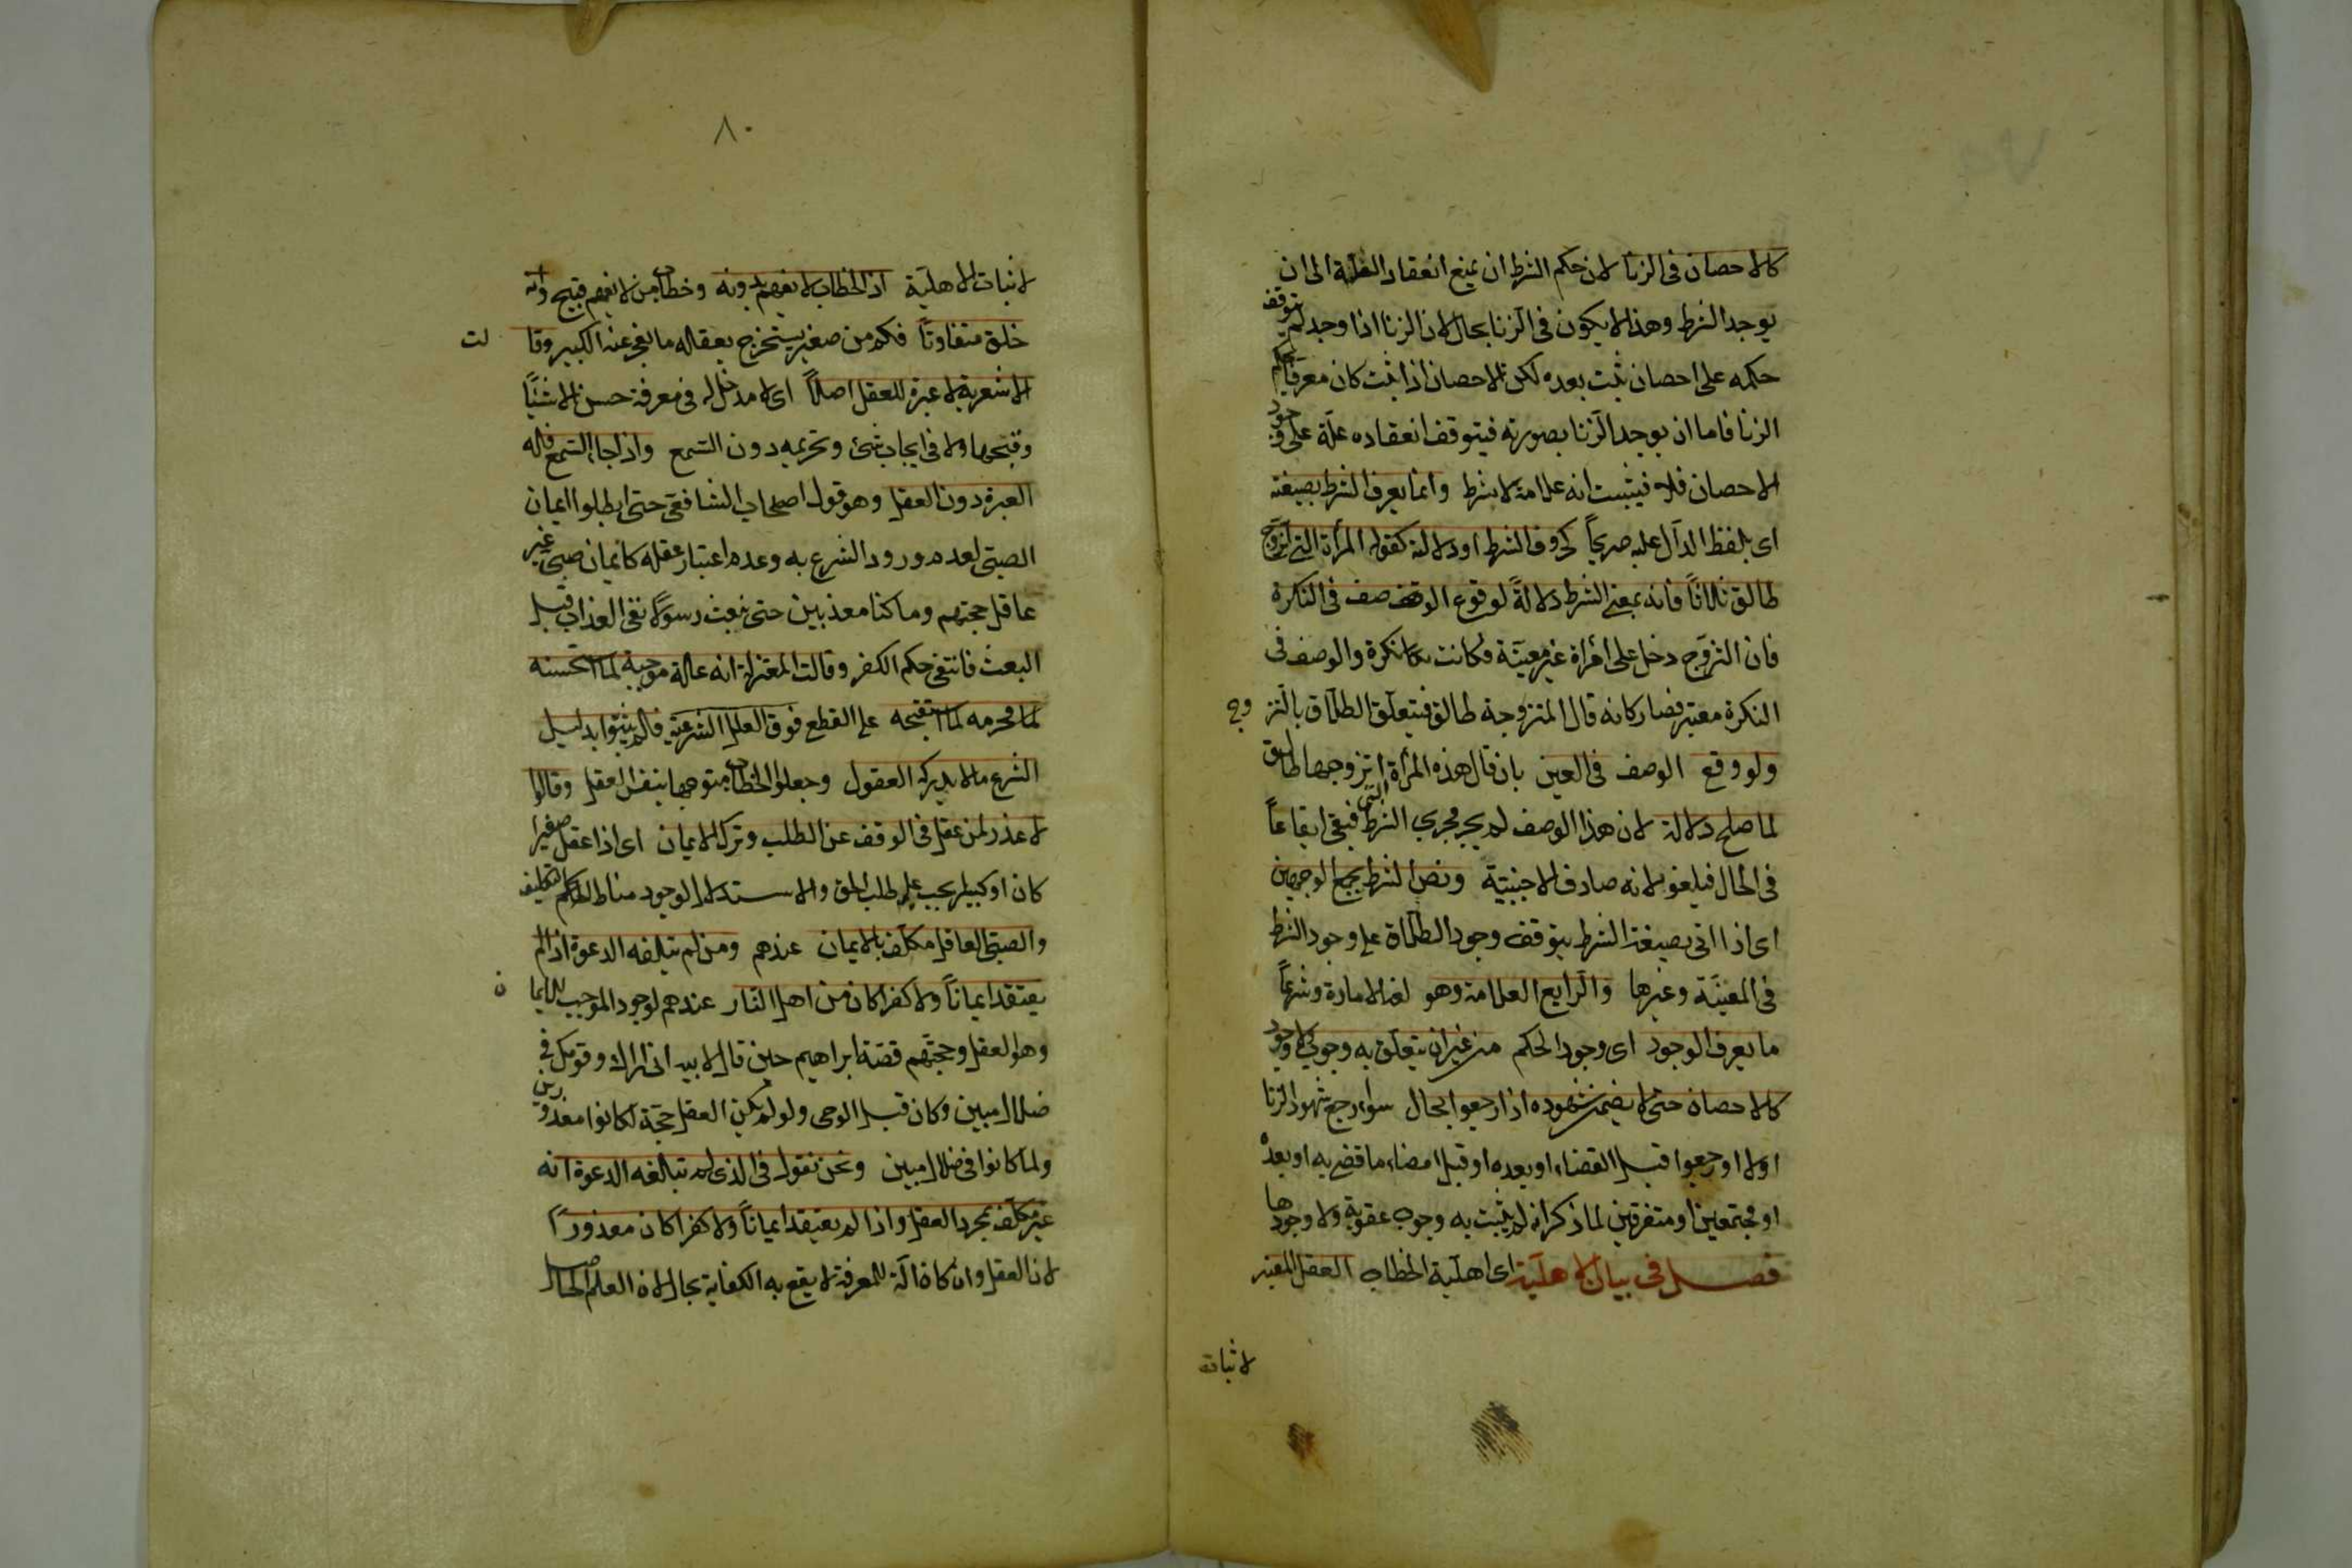 كالاحصان فى الزنا لان حكم الشرط ان يمنع انعقاد العلة الى ان
يوجد الشرط وهذا لا يكون فى الزنا بحال لان الزنا اذا وجد لم يتوقف
حكمه على احصان يثبت بعده لكن الاحصان اذا ثبت كان معرفا لحكم
الزنا فاما ان يوجد الزنا بصورته فيتوقف انعقاده علة على وجود
الاحصان فلا فيثبت انه علامة لا شرط وانما يعرف الشرط بصيغته
اى بلفظ الدال عليه صريحاً كحروف الشرط او دلالة كقوله المرأة التى اتزوج
طالق ثلاثاً فانه بمعنى الشرط دلالةً لوقوع الوصف فى النكرة
فان التزوج دخل على امرأة غير معينة فكانت كالنكرة والوصف فى
النكرة معتبر فصار كانه قال المتزوجة طالق فيتعلق الطلاق بالتزوج
ولو وقع الوصف فى العين بان قال هذه المرأة التى اتزوجها طالق
لما صلح دلالة لان هذا الوصف لم يجر مجرى الشرط فبقى ايقاعاً
فى الحال فيلغو لانه صادف الاجنبية ونص الشرط يجمع الوجهين
اى اذا اتى بصيغة الشرط يتوقف وجود الطلاق على وجود الشرط
فى المعينة وغيرها والرابع العلامة وهو لغة الامارة وشرعاً
ما يعرف الوجود اى وجود الحكم من غير ان يتعلق به وجوب ولا وجود
كالاحصان حتى لا يضمن شهوده اذا رجعوا بحال سواء رجع شهود الزنا
اولا او رجعوا قبل القضاء او بعده او قبل امضاء ما قضى به او بعده
او مجتمعين او متفرقين لما ذكر انه لم يثبت به وجوب عقوبة ولا وجودها
فصل فى بيان الاهلية اى اهلية الخطاب العقل المعتبر
لاثبات
٨٠
لاثبات الاهلية اذ الخطاب لا يفهم بدونه وخطاب من لا يفهم قبيح وانه
خلق متفاوتاً فكم من صغير يستخرج بعقله ما يعجز عنه الكبير وقالت
الاشعرية لا عبرة للعقل اصلاً اى لا مدخل له فى معرفة حسن الاشياء
وقبحها ولا فى ايجاب شئ وتحريمه دون السمع واذا جاء السمع فله
العبرة دون العقل وهو قول اصحاب الشافعى حتى ابطلوا ايمان
الصبى لعدم ورود الشرع به وعدم اعتبار عقله كايمان صبى غير
عاقل حجتهم وما كنا معذبين حتى نبعث رسولا نفى العذاب قبل
البعث فانتفى حكم الكفر وقالت المعتزلة انه علة موجبة لما استحسنه
محرمة لما استقبحه على القطع فوق العلل الشرعية فلم يثبتوا بدليل
الشرع ما لا يدركه العقول وجعلوا الخطاب متوجها بنفس العقل وقالوا
لا عذر لمن عقل فى الوقف عن الطلب وترك الايمان اى اذا عقل صغيرا
كان او كبيرا يجب عليه طلب الحق والاستدلال لوجود مناط التكليف
والصبى العاقل مكلف بالايمان عندهم ومن لم تبلغه الدعوة اذا لم
يعتقد ايماناً ولا كفرا كان من اهل النار عندهم لوجود الموجب للايمان
وهو العقل وحجتهم قصة ابراهيم حين قال لابيه انى اراك وقومك فى
ضلال مبين وكان قبل الوحى ولو لم يكن العقل حجة لكانوا معذورين
ولما كانوا فى ضلال مبين ونحن نقول فى الذى لم تبلغه الدعوة انه
غير مكلف بمجرد العقل واذا لم يعتقد ايماناً ولا كفرا كان معذوراً
لان العقل وان كان آلة للمعرفة لا يقع به الكفاية بحال لان العلم الحاصل